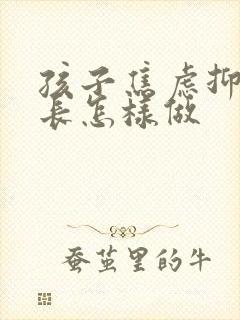 孩子焦虑抑
长怎样做
蚕茧里的牛